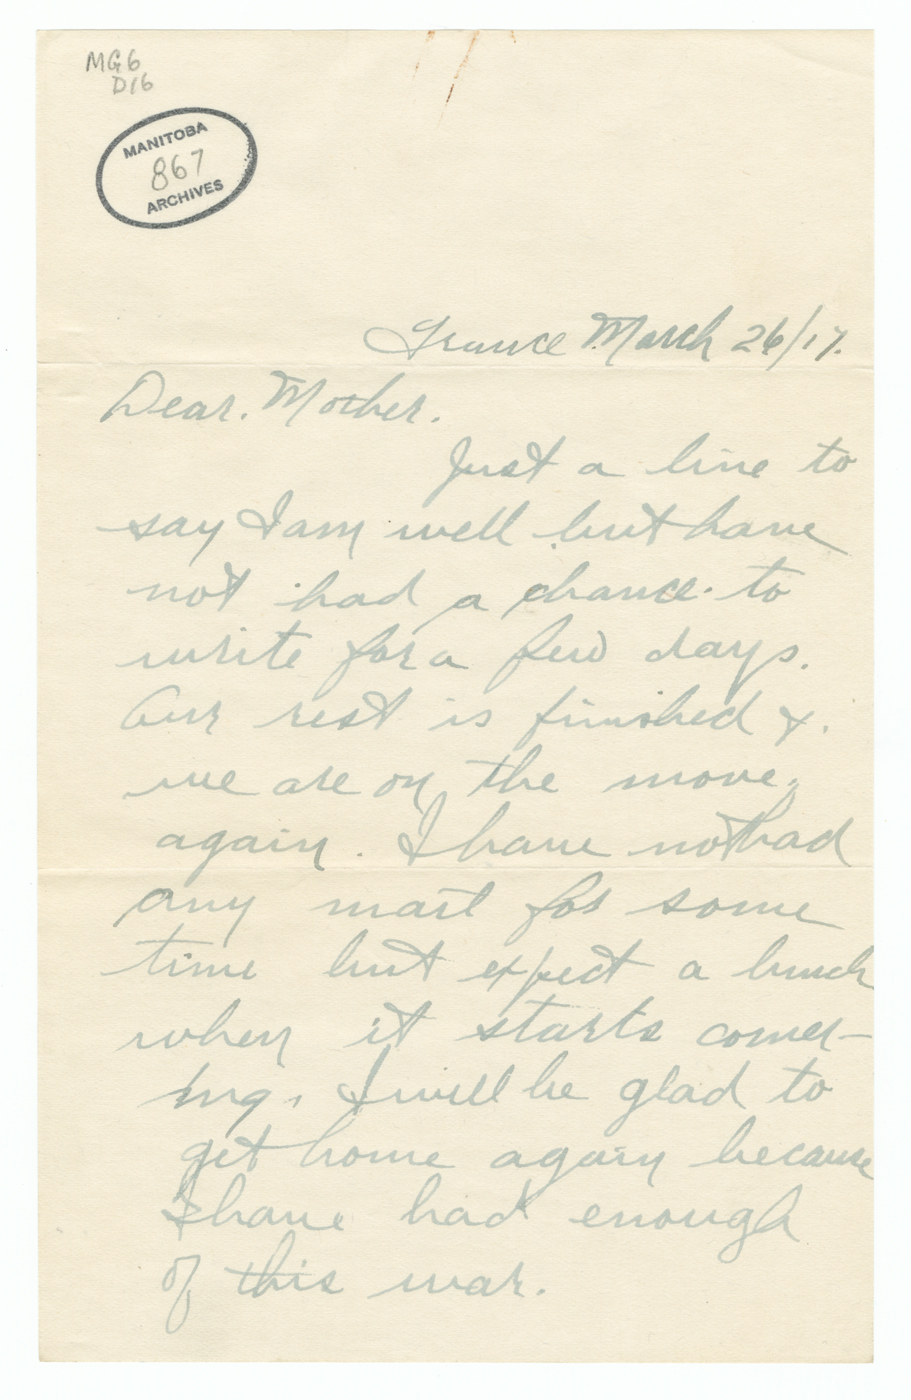 MG6
D16
MANITOBA
867
ARCHIVES
France March 26/17.
Dear. Mother.
Just a line to
say I am well but have
not had a chance to
write for a few days.
Our rest is finished &
we are on the move
again. I have not had
any mail for some
time but expect a bunch
when it starts comei-
ng. I will be glad to
get home again because
I have had enough
of this war.